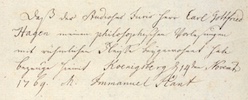 Daß der Studiosus Juris Herr Carl Gottfried
Hagen meinen philosophischen Vorlesungen
mit rühmlichem Fleiße beygewohnt hat
bezeuge hiemit Koenigsberg d 14ten Novembr
1769. M. Immanuel Kant